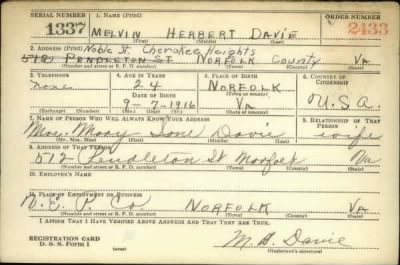 SERIAL NUMBER 1. NAME (Print) ORDER NUMBER
1337 MELVIN HERBERT DAVIE 2433
(First) (Middle) (Last)
2. ADDRESS (Print) Noble St. Cherokee Heights
512 PENDLETON ST NORFOLK County VA
(Number and street or R. F. D. number) (Town) (County) (State)
3. TELEPHONE 4. AGE IN YEARS 5. PLACE OF BIRTH 6. COUNTRY OF CITIZENSHIP
none 24 NORFOLK
DATE OF BIRTH (Town or county)
9-7-1916 VA U.S.A.
(Mo.) (Day) (Yr.) (State or country)
7. NAME OF PERSON WHO WILL ALWAYS KNOW YOUR ADDRESS 8. RELATIONSHIP OF THAT PERSON
Mrs. Mary Davie wife
(Mr., Mrs., Miss) (First) (Middle) (Last)
9. ADDRESS OF THAT PERSON
512 Pendleton St Norfolk Va
(Number and street or R. F. D. number) (Town) (County) (State)
10. EMPLOYER'S NAME
11. PLACE OF EMPLOYMENT OR BUSINESS
P. Co. NORFOLK VA
(Number and street or R. F. D. number) (Town) (County) (State)
I AFFIRM THAT I HAVE VERIFIED ABOVE ANSWERS AND THAT THEY ARE TRUE.
REGISTRATION CARD
D. S. S. Form 1 M. H. Davie
(Registrant's signature)